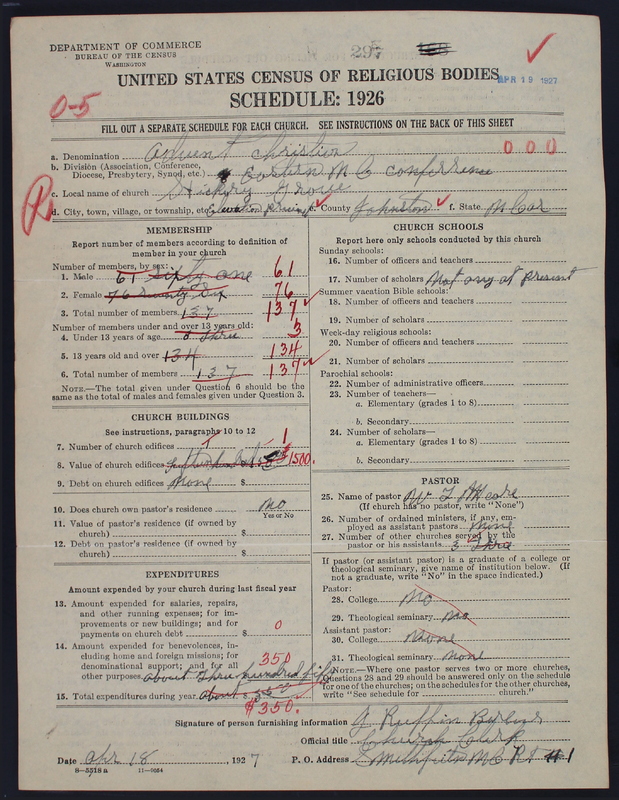 DEPARTMENT OF COMMERCE
BUREAU OF THE CENSUS
WASHINGTON
295
UNITED STATES CENSUS OF RELIGIOUS BODIES
APR 19 1927
SCHEDULE: 1926
0-5
FILL OUT A SEPARATE SCHEDULE FOR EACH CHURCH. SEE INSTRUCTIONS ON THE BACK OF THIS SHEET
a. Denomination Advent Christian 0 0 0
b. Division (Association, Conference, Diocese, Presbytery, Synod, etc.) Eastern N C conference
c. Local name of church Hickory Grove
d. City, town, village, or township, etc. Elevation e. County Johnston f. State N Car
MEMBERSHIP
Report number of members according to definition of member in your church
Number of members, by sex:
1. Male 61 Sixty one 61
2. Female 76 Seventy Six 76
3. Total number of members 137 137
Number of members under and over 13 years old:
4. Under 13 years of age 3 Three 3
5. 13 years old and over 134 134
6. Total number of members 137 137
NOTE.—The total given under Question 6 should be the same as the total of males and females given under Question 3.
CHURCH BUILDINGS
See instructions, paragraphs 10 to 12
7. Number of church edifices 1 1
8. Value of church edifices $ 1500.
9. Debt on church edifices None $
10. Does church own pastor's residence? No
Yes or No
11. Value of pastor's residence (if owned by church) $
12. Debt on pastor's residence (if owned by church) $
EXPENDITURES
Amount expended by your church during last fiscal year
13. Amount expended for salaries, repairs, and other running expenses; for improvements or new buildings; and for payments on church debt $ 0
14. Amount expended for benevolences, including home and foreign missions; for denominational support; and for all other purposes about Three hundred fifty 350
15. Total expenditures during year about $350.
CHURCH SCHOOLS
Report here only schools conducted by this church
Sunday schools:
16. Number of officers and teachers
17. Number of scholars Not any at Present
Summer vacation Bible schools:
18. Number of officers and teachers
19. Number of scholars
Week-day religious schools:
20. Number of officers and teachers
21. Number of scholars
Parochial schools:
22. Number of administrative officers
23. Number of teachers—
a. Elementary (grades 1 to 8)
b. Secondary
24. Number of scholars—
a. Elementary (grades 1 to 8)
b. Secondary
PASTOR
25. Name of pastor
(If church has no pastor, write "None")
26. Number of ordained ministers, if any, employed as assistant pastors None
27. Number of other churches served by the pastor or his assistants 3 Three
If pastor (or assistant pastor) is a graduate of a college or theological seminary, give name of institution below. (If not a graduate, write "No" in the space indicated.)
Pastor:
28. College No
29. Theological seminary No
Assistant pastor:
30. College None
31. Theological seminary None
NOTE.—Where one pastor serves two or more churches, Questions 28 and 29 should be answered only on the schedule for one of the churches; on the schedules for the other churches, write "See schedule for church."
Signature of person furnishing information Ruffin
Official title Church Clerk
Date Apr 18 1927 P. O. Address Smithfield N C R 1
8—5518 a 11—9054